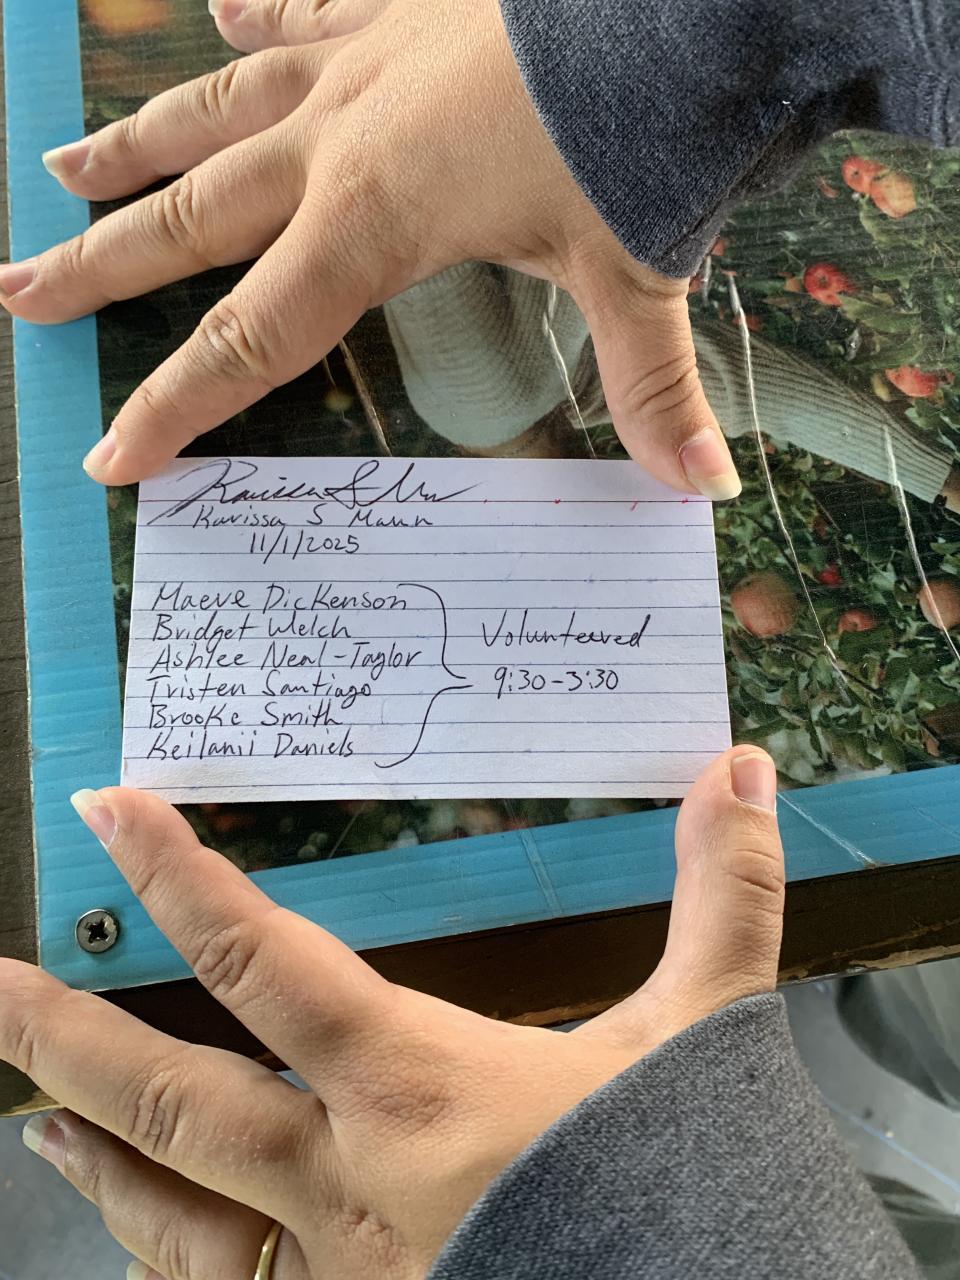 Karissa S Mann
Karissa S Mann
11/1/2025
Maeve Dickenson
Bridget Welch
Ashlee Neal-Taylor
Tristen Santiago
Brooke Smith
Keilanii Daniels
Volunteered
9:30-3:30